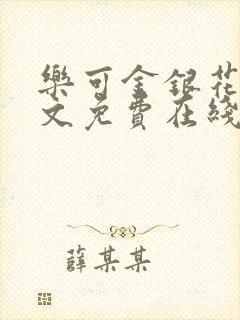 樂可金銀花
文免費在綫
薛某某